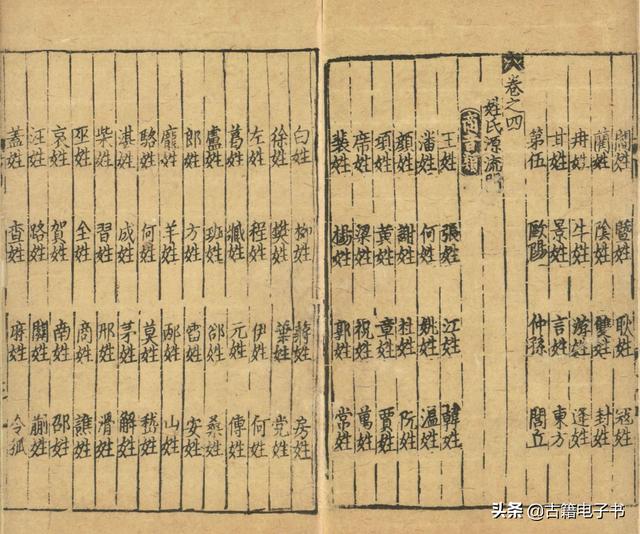 閻姓 醫姓 耿姓 寇姓
藺姓 陰姓 雙姓 封姓
冉姓 牛姓 游姓 逄姓
甘姓 景姓 言姓 東方
第伍 歐陽 仲孫 閭立
卷之四
姓氏源流門
王姓 張姓 江姓 韓姓
潘姓 何姓 姚姓 溫姓
顏姓 謝姓 杜姓 阮姓
項姓 黃姓 章姓 賈姓
席姓 梁姓 祝姓 萬姓
裴姓 楊姓 郭姓 常姓
白姓 柳姓 蔣姓 房姓
徐姓 樊姓 葉姓 党姓
左姓 程姓 伊姓 何姓
葛姓 臧姓 元姓 傅姓
盧姓 班姓 郤姓 桑姓
郎姓 方姓 雷姓 安姓
龐姓 羊姓 邴姓 山姓
駱姓 何姓 莫姓 嵇姓
湛姓 成姓 茅姓 解姓
柴姓 習姓 邢姓 滑姓
巫姓 全姓 商姓 譙姓
哀姓 賀姓 南姓 邵姓
汪姓 路姓 關姓 蒯姓
蓋姓 查姓 麻姓 令狐
头条 @古籍电子书